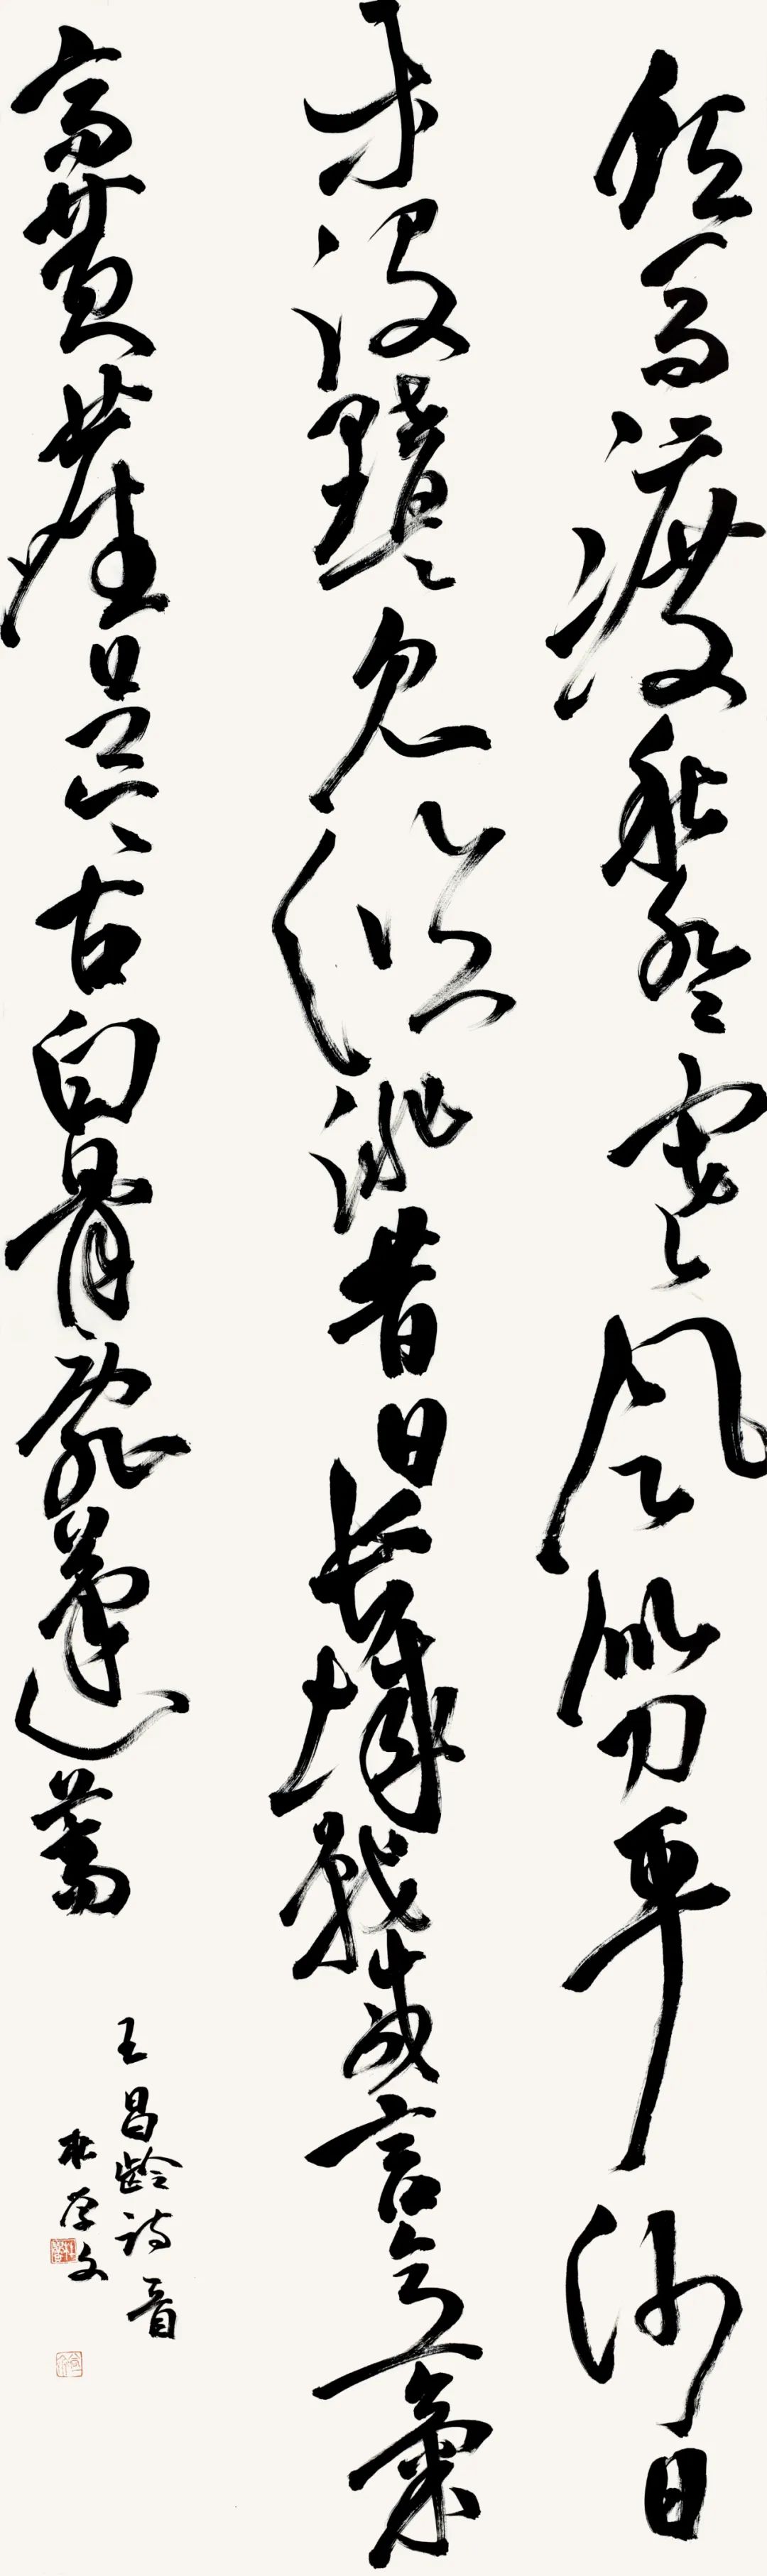 飲馬渡秋水々寒風似刀平沙日
未沒黯々見臨洮昔日長城戰咸言意氣
高黃塵足今古白骨亂蓬蒿
王昌龄诗一首
杜学文